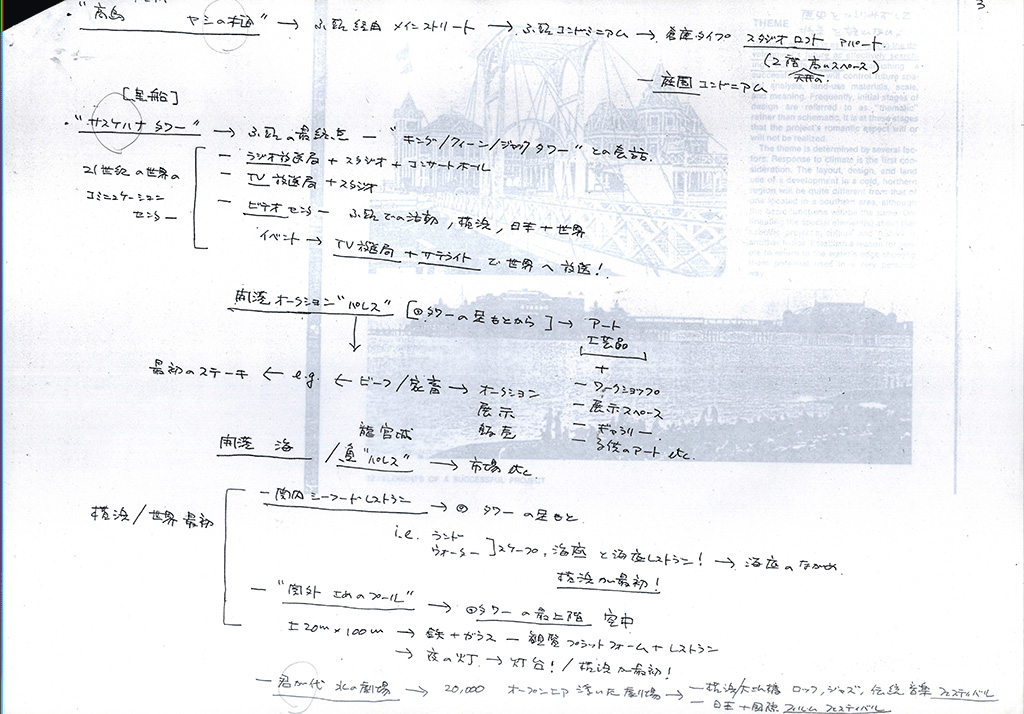 3.
• "高島 ヤシの木通" → ふ頭 経由 メインストリート → ふ頭コンドミニアム → 倉庫タイプ スタジオロフト アパート.
(2階 高いスペース)
天井の
— 庭園コンドミニアム
[黒船]
• "サスケハナ タワー" → ふ頭の最終点 — "キング/クィーン/ジャックタワー" との会話.
21世紀の世界の
コミュニケーション
センター
— ラジオ放送局 + スタジオ + コンサートホール
— TV放送局 + スタジオ
— ビデオセンター ふ頭での活動, 横浜, 日本 + 世界
イベント → TV放送局 + サテライト で世界へ放送!
開港オークション"パレス" [⊙タワーの足もとから] → アート
工芸品
+
— ワークショップ
— 展示スペース
— ギャラリー
— 子供のアート etc.
最初のステーキ ← e.g. ← ビーフ/家畜 → オークション
展示
販売
龍宮城
開港 海 / 魚"パレス" → 市場 etc
横浜/世界最初
— 関内シーフードレストラン → ⊙ タワーの足もと
i.e. ランド
ウォーター ]スケープ, 海底 と海底レストラン! → 海底のながめ.
横浜が最初!
— "関外 のプール" → ⊙タワーの最上階 空中
±20m×100m → 鉄+ガラス — 観覧プラットフォーム+レストラン
→ 夜の灯 → 灯台! / 横浜が最初!
— 君が代 水の劇場 → 20,000 オープンエア 浮いた劇場 → — 横浜/大さん橋 ロック, ジャズ, 伝統音楽 フェスティバル
— 日本+国際フィルムフェスティバル
THEME
DEVELOPMENTS OF A SUCCESSFUL PROJECT
design are referred to as "thematic"
rather than schematic, it is at those stages
that the project's romantic aspect will or
will not be realized.
The theme is determined by several fac-
tors. Response to climate is the first con-
sideration. The layout, design, and land
use of a development in a cold, northern
region will be quite different from that of